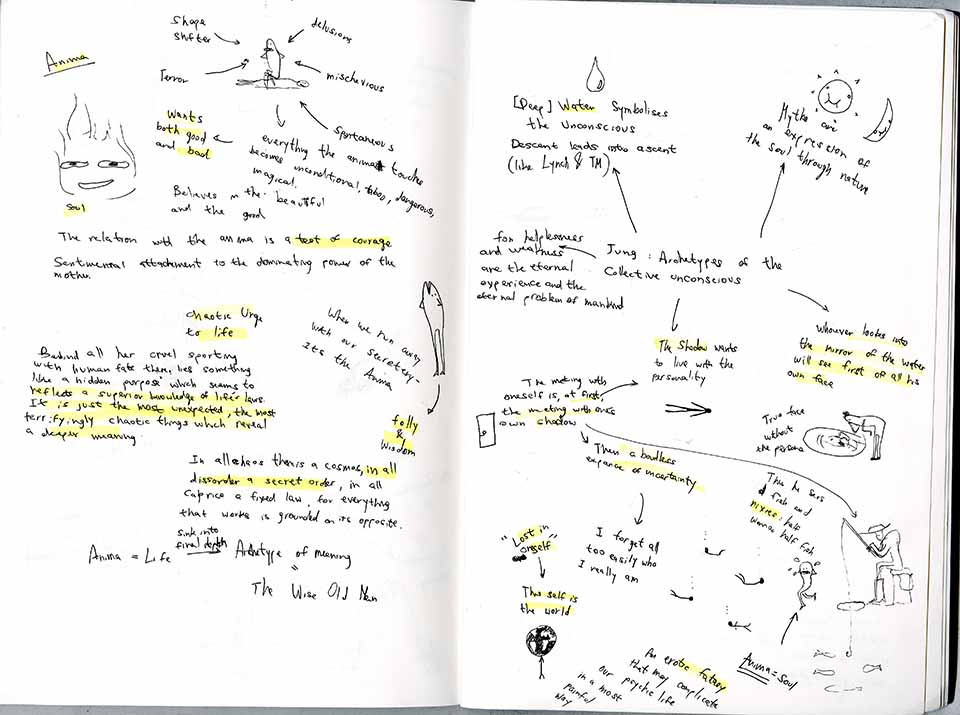 Anima
Shape
Shifter
delusions
Terror
mischevious
Spontaneous
Wants
both good
and bad
everything the anima touches
becomes unconditional, taboo, dangerous,
magical.
Believes in the beautiful
and the good
Soul
The relation with the anima is a test of courage
Sentimental attachement to the dominating power of the
mother.
chaotic Urge
to life
When we run away
with our secretery
Its the Anima
Behind all her cruel sporting
with human fate there lies something
like a hidden purpose which seems to
reflect a superior knowledge of life's laws.
It is just the most unexpected, the most
terrifyingly chaotic things which reveal
a deeper meaning.
folly
&
Wisdom
In all chaos there is a cosmos, in all
dissorder a secret order, in all
Caprice a fixed law, for everything
that works is grounded on its opposite.
sink into
final depth
Anima = Life
Archetype of meaning
"
The Wise Old Man
[Deep] Water Symbolises
the Unconscious
Descent leads into ascent
(like Lynch & TM)
Myths are
an expression of
the soul through nature
for helplessness
and weakness
are the eternal
experience and the
eternal problem of mankind
Jung: Archetypes of the
Collective unconscious
whoever lookes into
the mirror of the water
will see first of all his
own face
The Shadow wants
to live with the
personality
The meting with
oneself is, at first,
the meeting with ones
own shadow
True face
without
the persona
Then a boudless
expance of uncertainty
Then he sees
a fish and
nixies: half
woman half fish
"Lost in
oneself"
I forget all
too easily who
I really am
This self is
the world
An erotic fatasy
that may complicate
our psychic life
in a most
painful
way
Anima = Soul